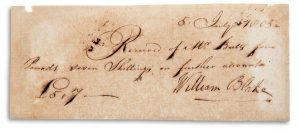 5 July 1805
Received of Mr Butts five
Pounds seven Shillings on further account
£5:7— William Blake